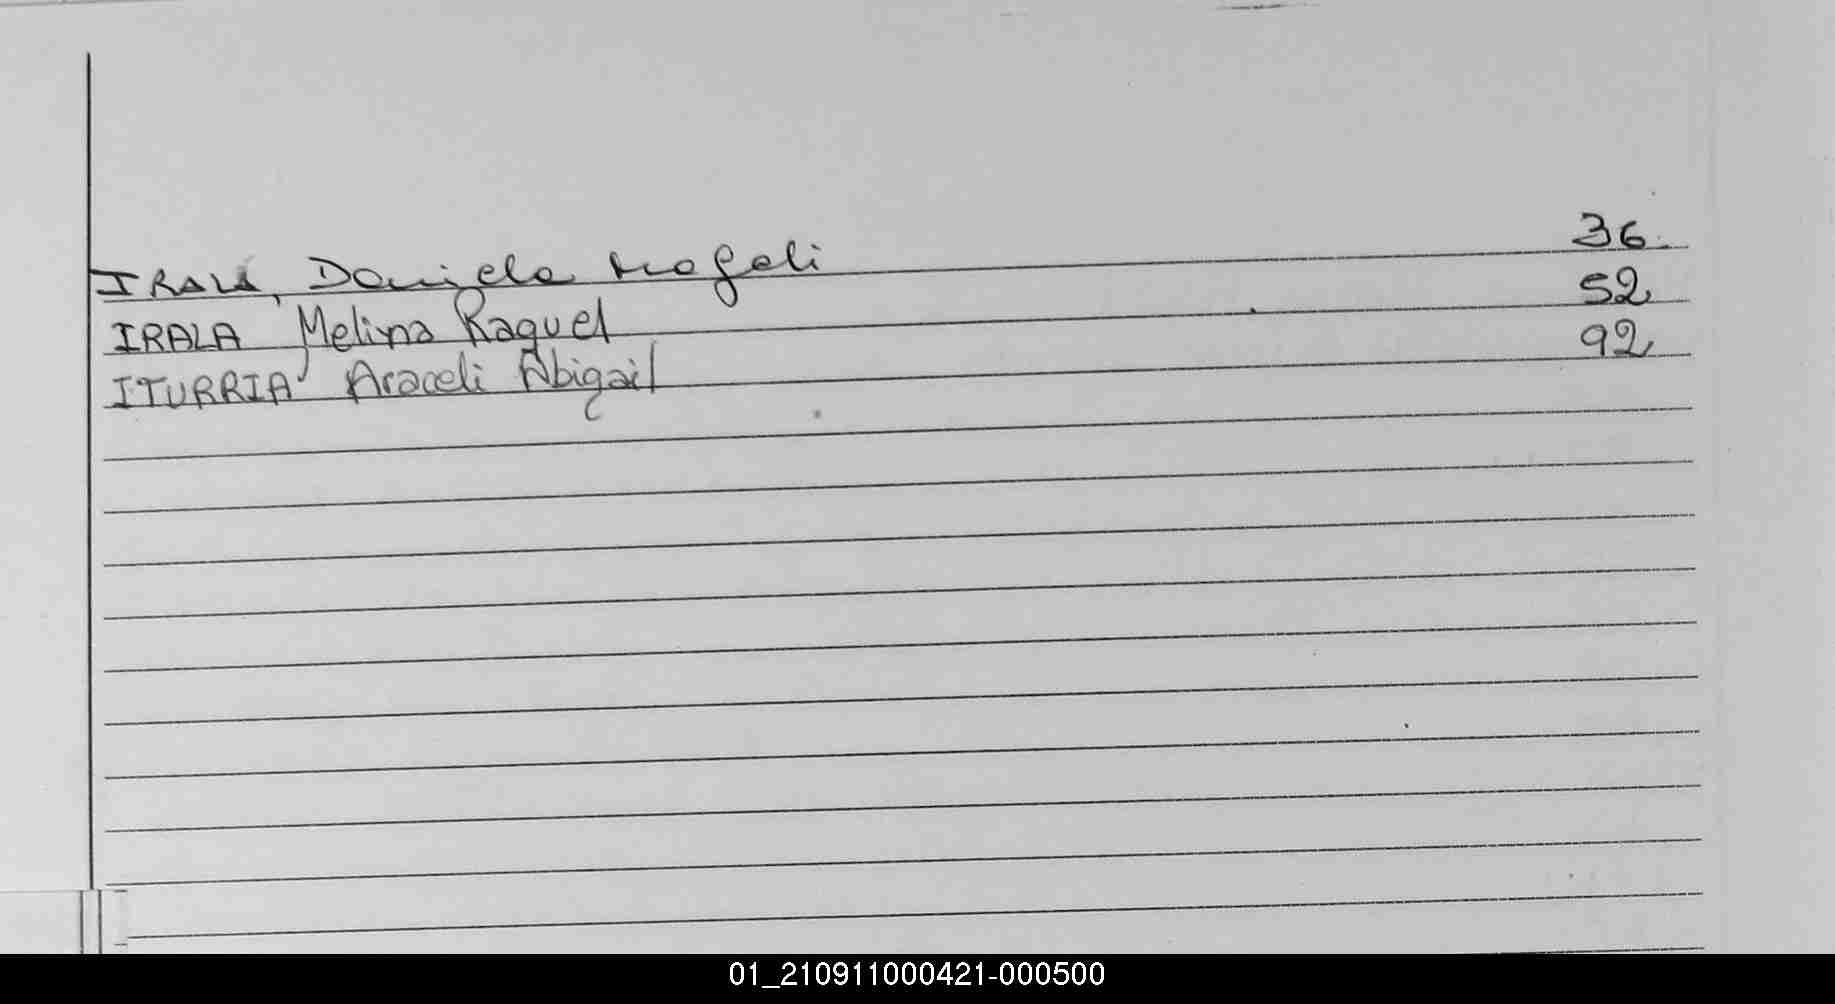 IRALA, Daniela Magali 36.
IRALA Melina Raquel 52
ITURRIA Araceli Abigail 92
01_210911000421-000500